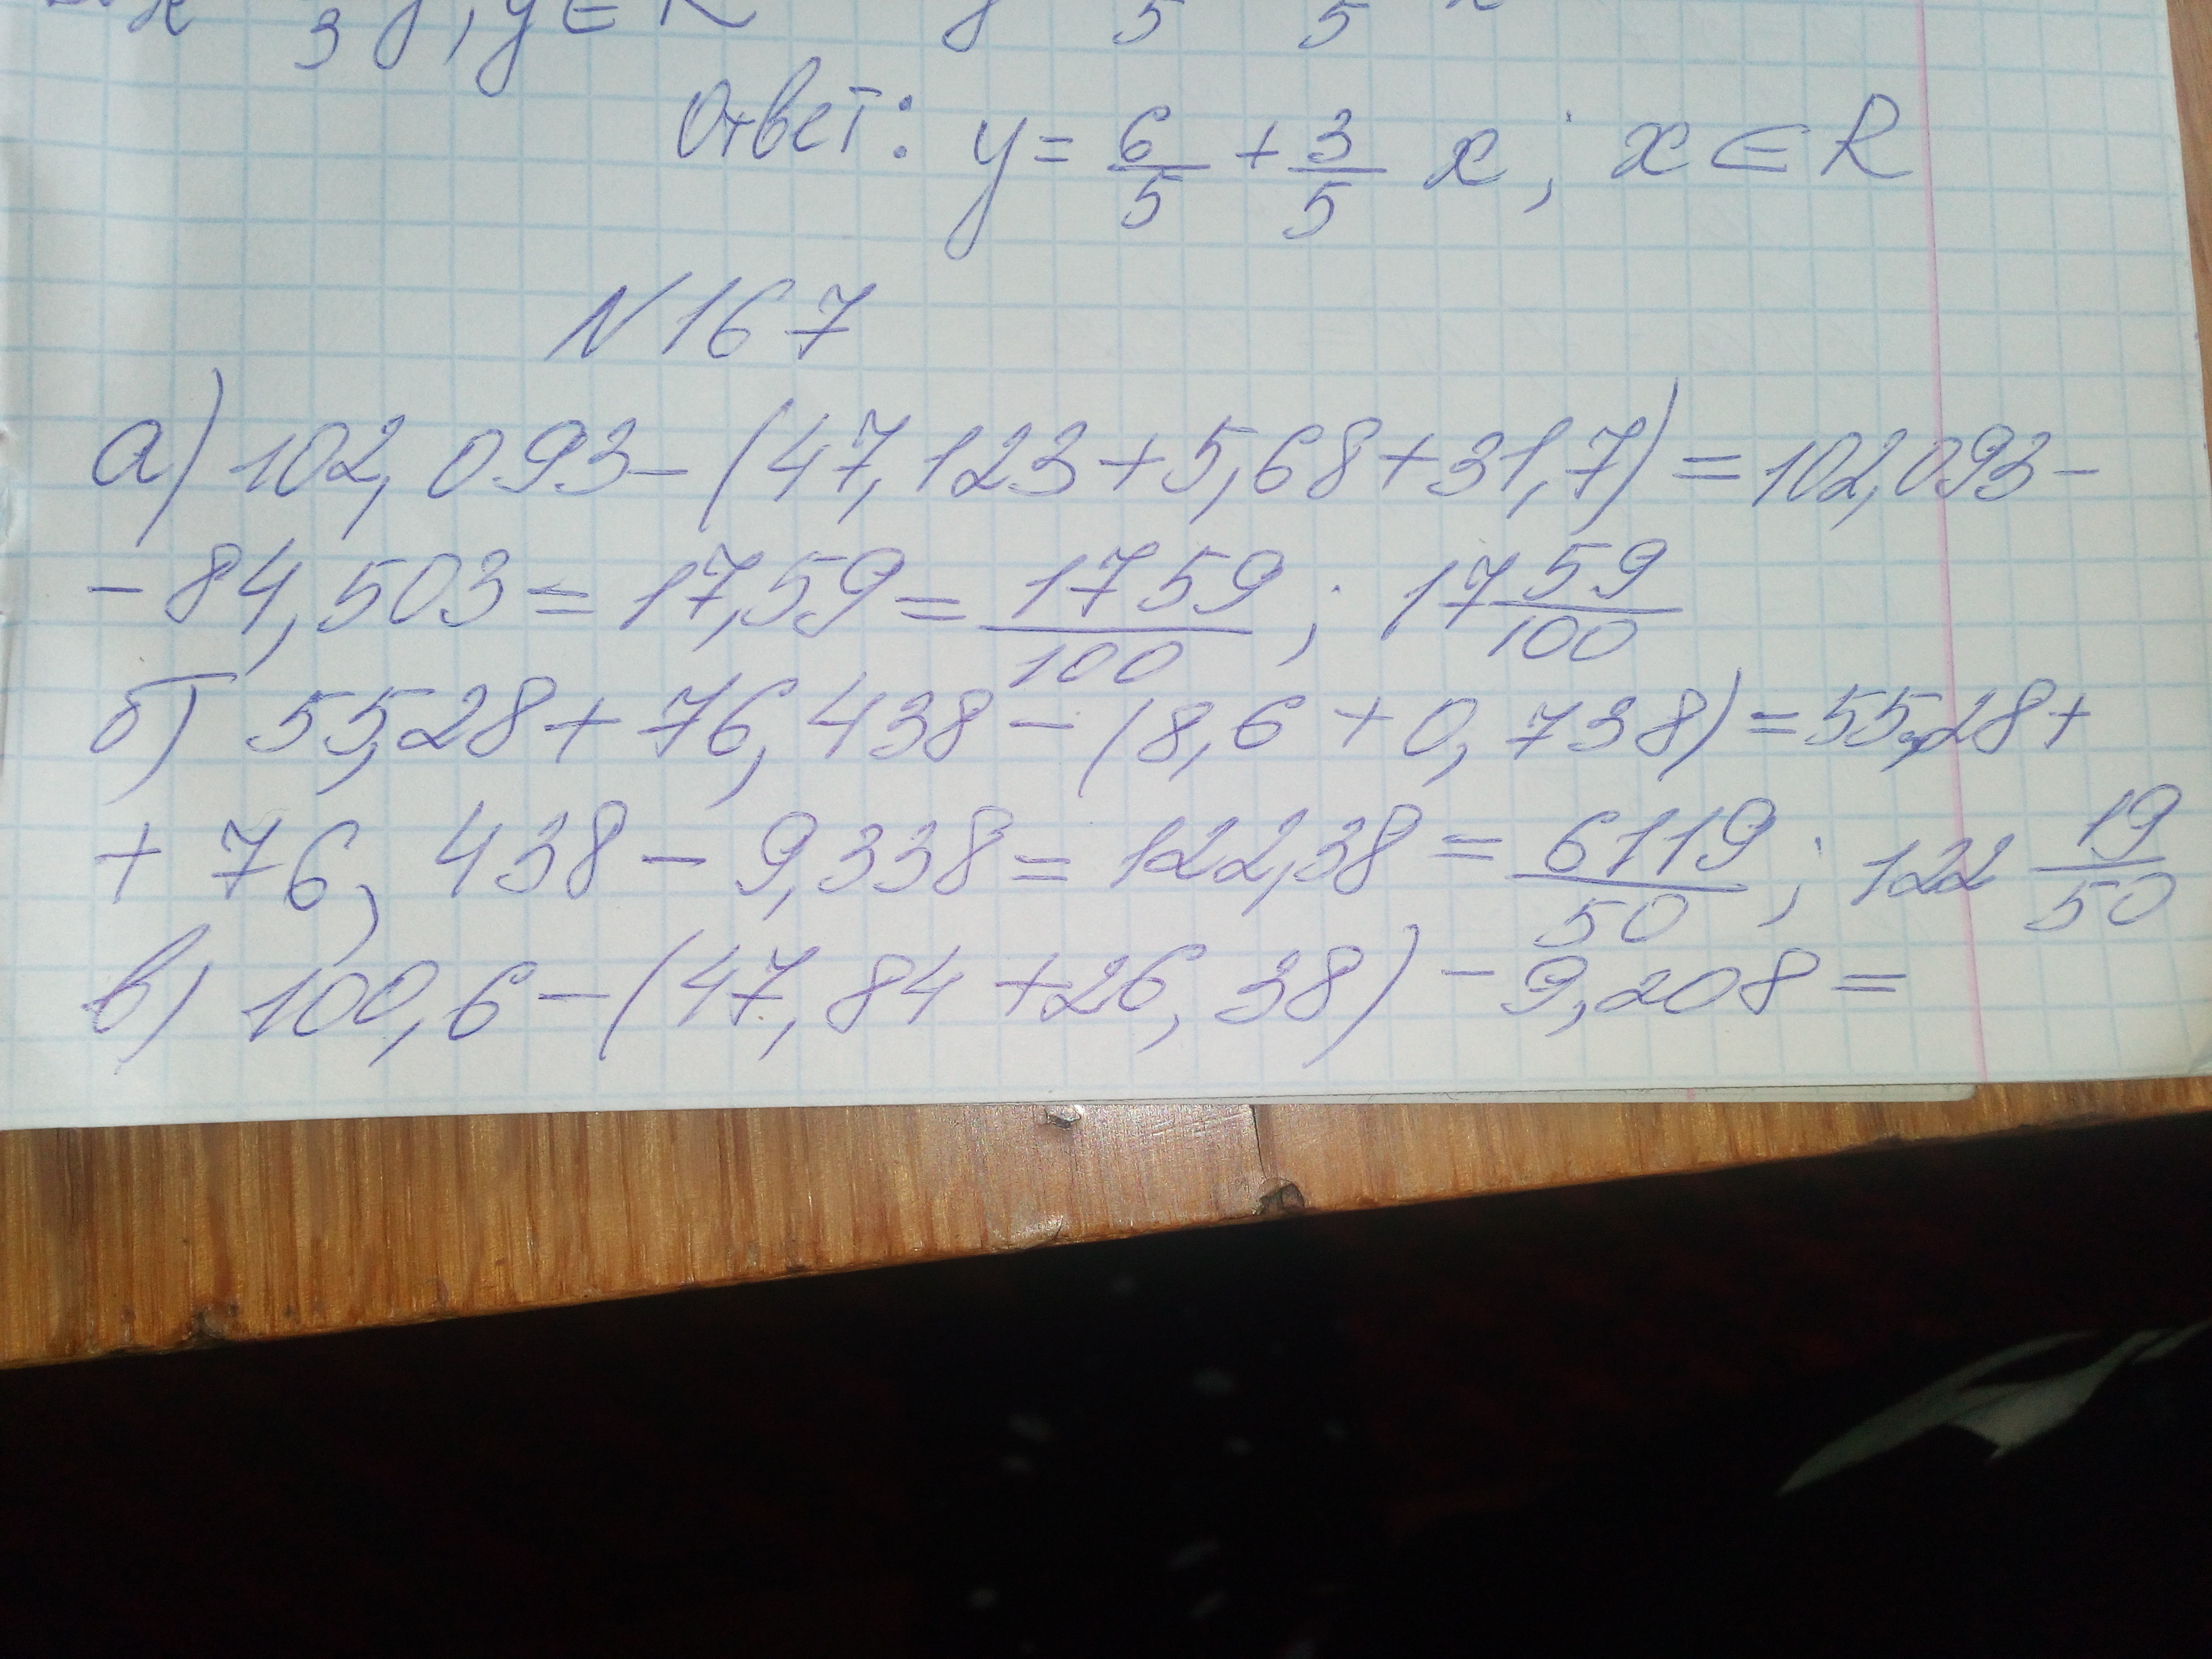 3 y, y ∈ R y 5 5 x
Ответ: y = 6/5 + 3/5 x; x ∈ R
N 167
а) 102,093 - (47,123 + 5,68 + 31,7) = 102,093 -
- 84,503 = 17,59 = 1759/100; 17 59/100
б) 55,28 + 76,438 - (8,6 + 0,738) = 55,28 +
+ 76,438 - 9,338 = 122,38 = 6119/50; 122 19/50
в) 100,6 - (47,84 + 26,38) - 9,208 =